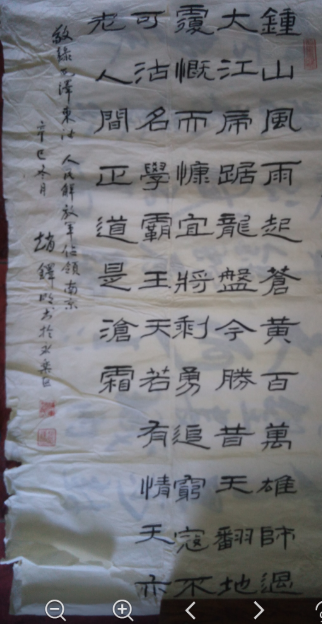 鍾山風雨起蒼黃百萬雄師過
大江虎踞龍盤今勝昔天翻地
覆慨而慷宜將剩勇追窮寇不
可沽名學霸王天若有情天亦
老人間正道是滄霜
敬錄毛澤東詩 人民解放軍佔領南京
辛巳冬月 趙鐸 书於